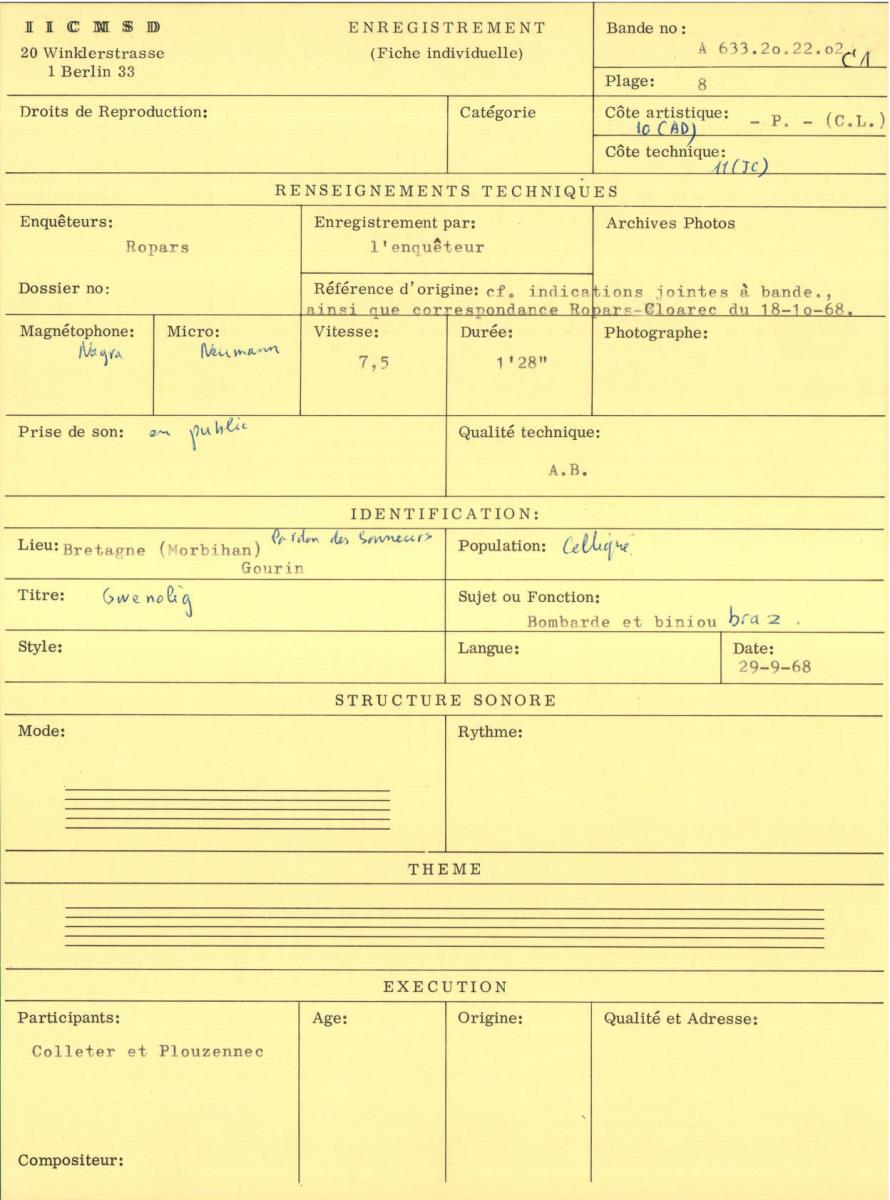 I I C M S D
20 Winklerstrasse
1 Berlin 33
ENREGISTREMENT
(Fiche individuelle)
Bande no:
A 633.2o.22.o2 C1
Plage: 8
Droits de Reproduction:
Catégorie
Côte artistique: - P. - (C.L.)
10 (AD)
Côte technique:
11 (JC)
RENSEIGNEMENTS TECHNIQUES
Enquêteurs:
Ropars
Dossier no:
Enregistrement par:
l'enquêteur
Archives Photos
Référence d'origine: cf. indications jointes à bande.,
ainsi que correspondance Ropars-Cloarec du 18-1o-68.
Magnétophone:
Nagra
Micro:
Neumann
Vitesse:
7,5
Durée:
1'28"
Photographe:
Prise de son: en public
Qualité technique:
A.B.
IDENTIFICATION:
Lieu: Bretagne (Morbihan) Pardon des Sonneurs
Gourin
Population: Celtique
Titre: Gwenolig
Sujet ou Fonction:
Bombarde et biniou braz.
Style:
Langue:
Date:
29-9-68
STRUCTURE SONORE
Mode:
Rythme:
THEME
EXECUTION
Participants:
Colleter et Plouzennec
Age:
Origine:
Qualité et Adresse:
Compositeur: